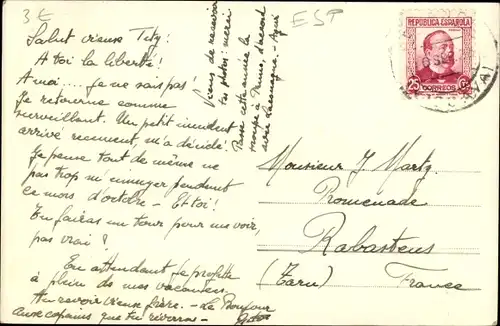 3€
ESP
Salut vieux Titz:
A toi la liberté!
A moi.... je ne sais pas!
Je retourne comme
surveillant. Un petit incident
arrivé récement, m'a décidé.
Je pense tout de même ne
pas trop m'ennuyer pendant
ce mois d'octobre - Et toi!
Tu feras un tour pour me voir,
pas vrai?
En attendant je profite
à plein de mes vacances.
Au revoir vieux frère. - Le Bonjour
aux copains que tu verras -
Viens de recevoir
tes photos: merci
Passe cette année la
troupe à
voir
REPUBLICA ESPAÑOLA
25 CORREOS Cts
Monsieur J. Martz
Promenade
Rabastens
(Tarn) France